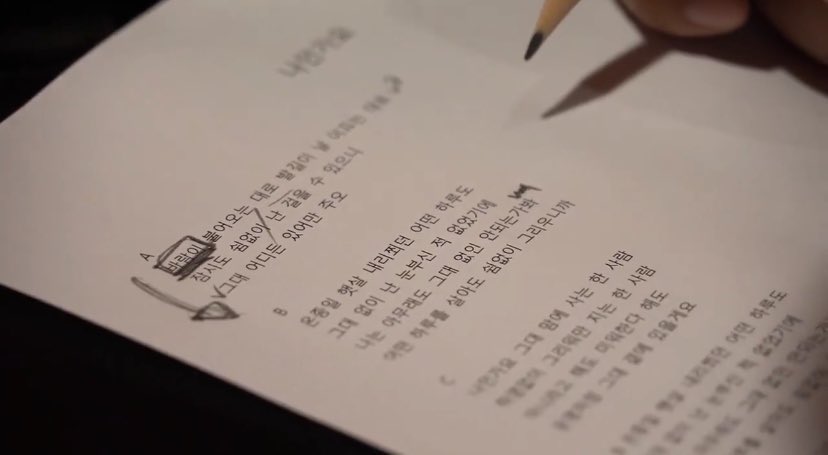 나인가요
A
바람이 불어오는 대로 발길이 날
잠시도 쉼없이 난 걸을 수 있으니
그대 어디든 있어만 주오
B
온종일 햇살 내리쬐던 어떤 하루도
그대 없이 난 눈부신 적 없었기에
나는 아무래도 그대 없인 안되는가봐
어떤 하루를 살아도 쉼없이 그리우니까
C
나인가요 그대 맘에 사는 한 사람
하염없이 그리워만 지는 한 사람
아니라고 해도 미워한다 해도
그대 곁에 있을게요
온종일 햇살 내리쬐던 어떤 하루도
그대 없이 난 눈부신 적 없었기에